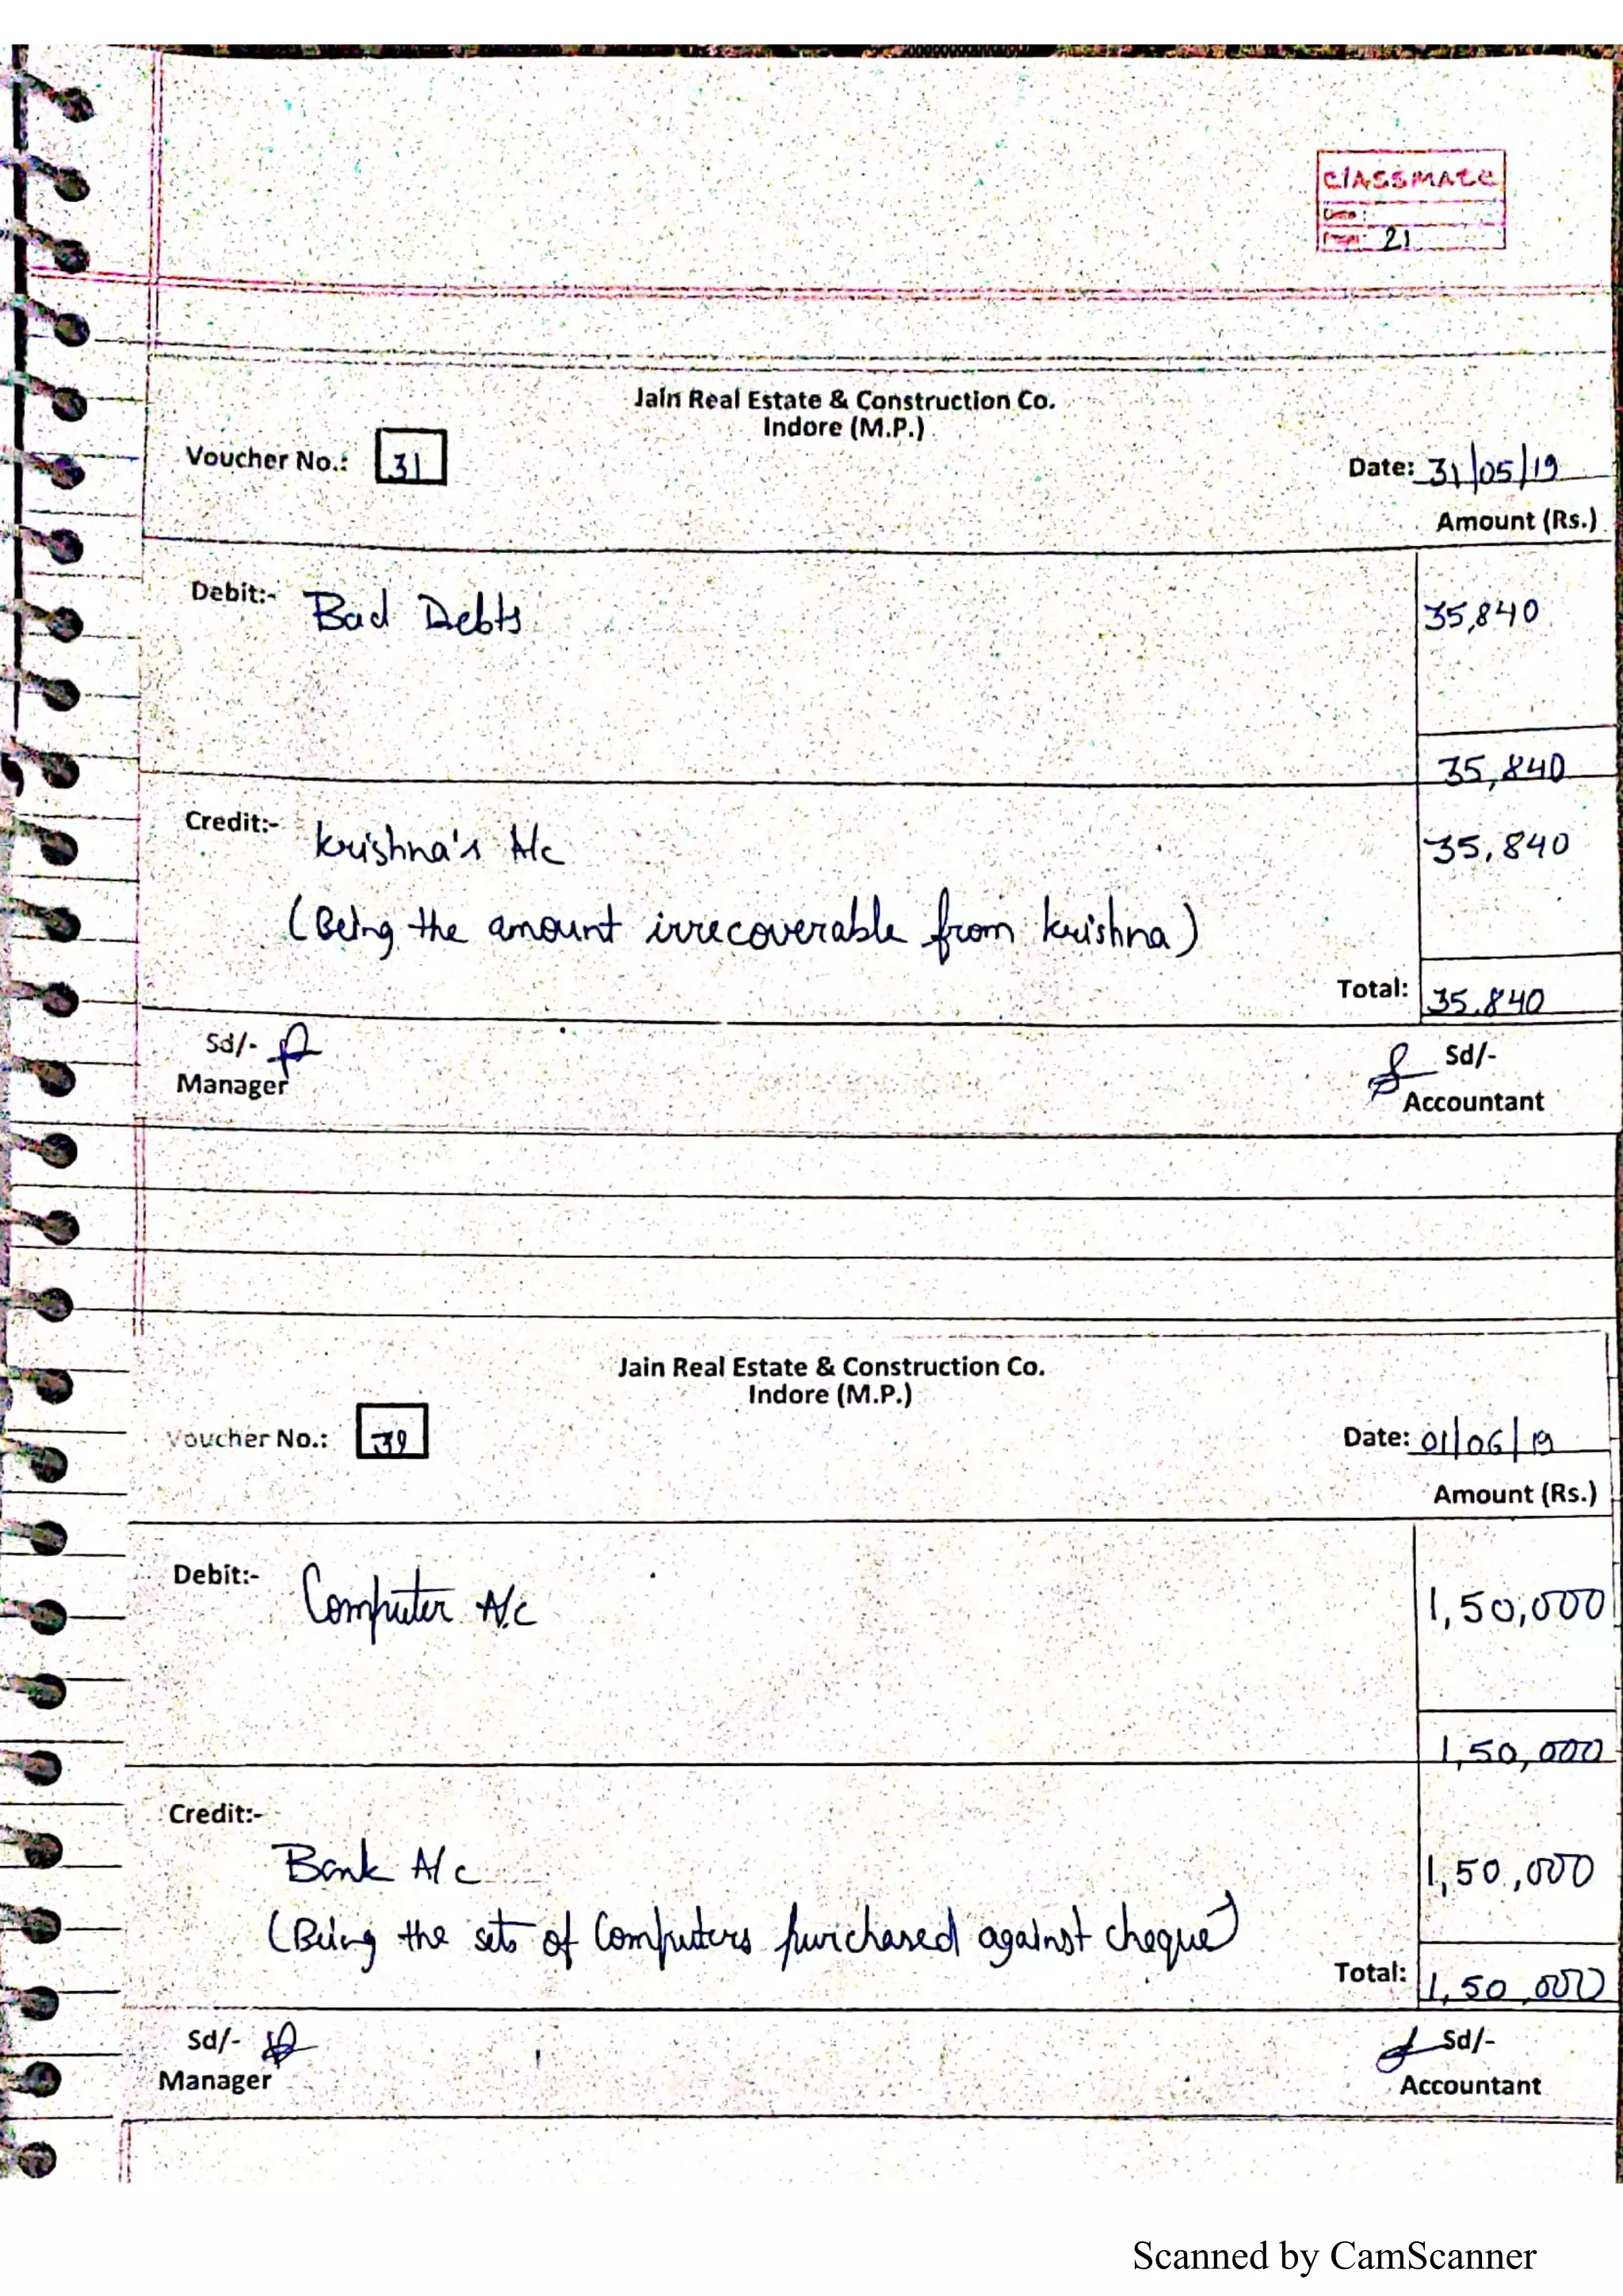 classmate
Date :
Page: 21
Jain Real Estate & Construction Co.
Indore (M.P.)
Voucher No.: 31
Date: 31/05/19
Amount (Rs.)
Debit:- Bad Debts 35,840
35,840
Credit:- Krishna's A/c 35,840
(Being the amount irrecoverable from Krishna)
Total: 35,840
Sd/- Sd/-
Manager Accountant
Jain Real Estate & Construction Co.
Indore (M.P.)
Voucher No.:
Date: 01/06/19
Amount (Rs.)
Debit:- Computer A/c 1,50,000
1,50,000
Credit:-
Bank A/c 1,50,000
(Being the sets of Computers purchased against cheque)
Total: 1,50,000
Sd/- Sd/-
Manager Accountant
Scanned by CamScanner